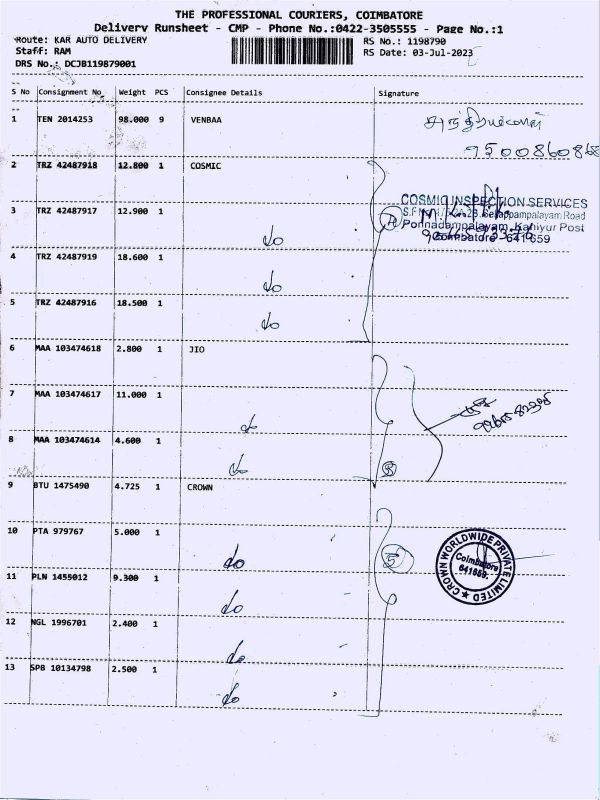 THE PROFESSIONAL COURIERS, COIMBATORE
Delivery Runsheet - CMP - Phone No.:0422-3505555 - Page No.:1
Route: KAR AUTO DELIVERY
RS No.: 1198790
Staff: RAM
RS Date: 03-Jul-2023
DRS No.: DCJB119879001
S No Consignment No Weight PCS Consignee Details Signature
1 TEN 2014253 98.000 9 VENBAA
9500860868
2 TRZ 42487918 12.800 1 COSMIC
COSMIC INSPECTION SERVICES
3 TRZ 42487917 12.900 1 do
Ponnadampalayam, Kaniyur Post
Coimbatore - 641 659
4 TRZ 42487919 18.600 1 do
5 TRZ 42487916 18.500 1 do
6 MAA 103474618 2.800 1 JIO
7 MAA 103474617 11.000 1 do
8 MAA 103474614 4.600 1 do
9 BTU 1475490 4.725 1 CROWN
10 PTA 979767 5.000 1 do
CROWN WORLDWIDE PRIVATE LIMITED
Coimbatore
641659.
11 PLN 1455012 9.300 1 do
12 NGL 1996701 2.400 1 do
13 SPB 10134798 2.500 1 do